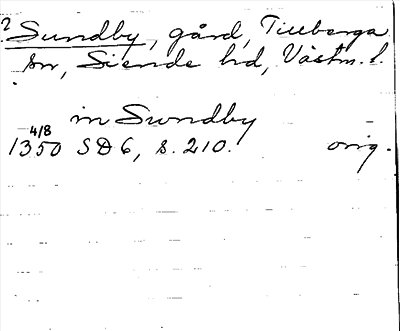 ? Sundby, gård, Tillberga
sn, Siende hd, Västm. l.
in Swndby
4/8
1350 SD 6, s. 210. orig.